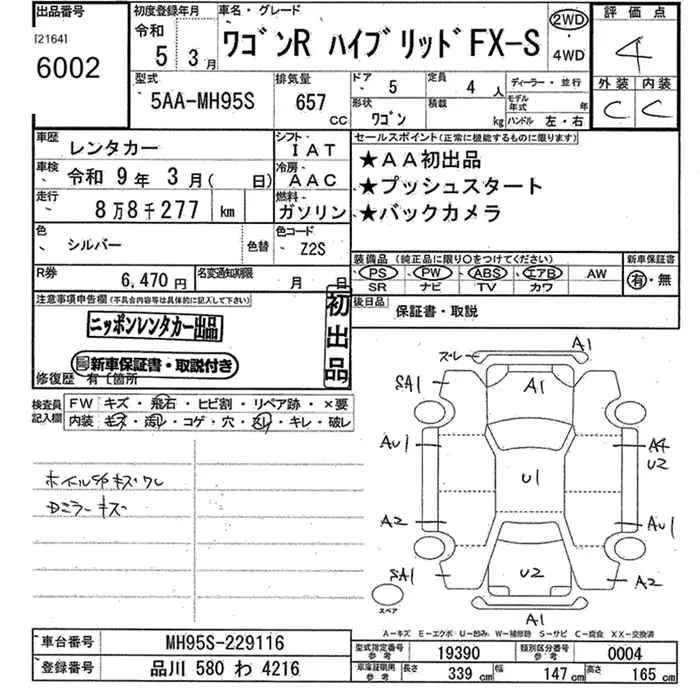 出品番号 初度登録年月 車名・グレード 2WD 評価点
[2164] 令和 ワゴンR ハイブリッド FX-S 4
6002 5 3月 4WD
型式 排気量 ドア 5 定員 4人 ディーラー・並行 外装 内装
5AA-MH95S 657 CC 形状 ワゴン 積載 kg モデル年式 年 C C
ハンドル 左・右
車歴 レンタカー シフト IAT セールスポイント(正常に機能するものに限ります)
車検 令和 9年 3月( 日) 冷房 AAC ★AA初出品
走行 8万8千277 km 燃料 ガソリン ★プッシュスタート
★バックカメラ
色 シルバー 色替 色コード Z2S
装備品(純正品に限り○をつけてください) 新車保証書
R券 6,470円 名変通知期限 月 日 PS PW ABS エアB AW 有・無
SR ナビ TV カワ
注意事項申告欄(不具合内容等は具体的に記入して下さい) 初出品 後日品 保証書・取説
ニッポンレンタカー出品
新車保証書・取説付き
修復歴 有 箇所
検査員記入欄 FW キズ・飛石・ヒビ割・リペア跡・×要
内装 キズ・汚レ・コゲ・穴・スレ・キレ・破レ
ホイールS/Pキズワレ
Dミラーキズ
ズレ A1
SA1 A1
AU1 A4
U2
U1
A2 AU1
SA1 U2 A2
スペア A1
A-キズ E-エクボ U-凹み W-補修跡 S-サビ C-腐食 XX-交換済
車台番号 MH95S-229116 型式指定番号 参考 19390 類別区分番号 参考 0004
登録番号 品川 580 わ 4216 車庫証明用 参考 長さ 339 cm 幅 147 cm 高さ 165 cm